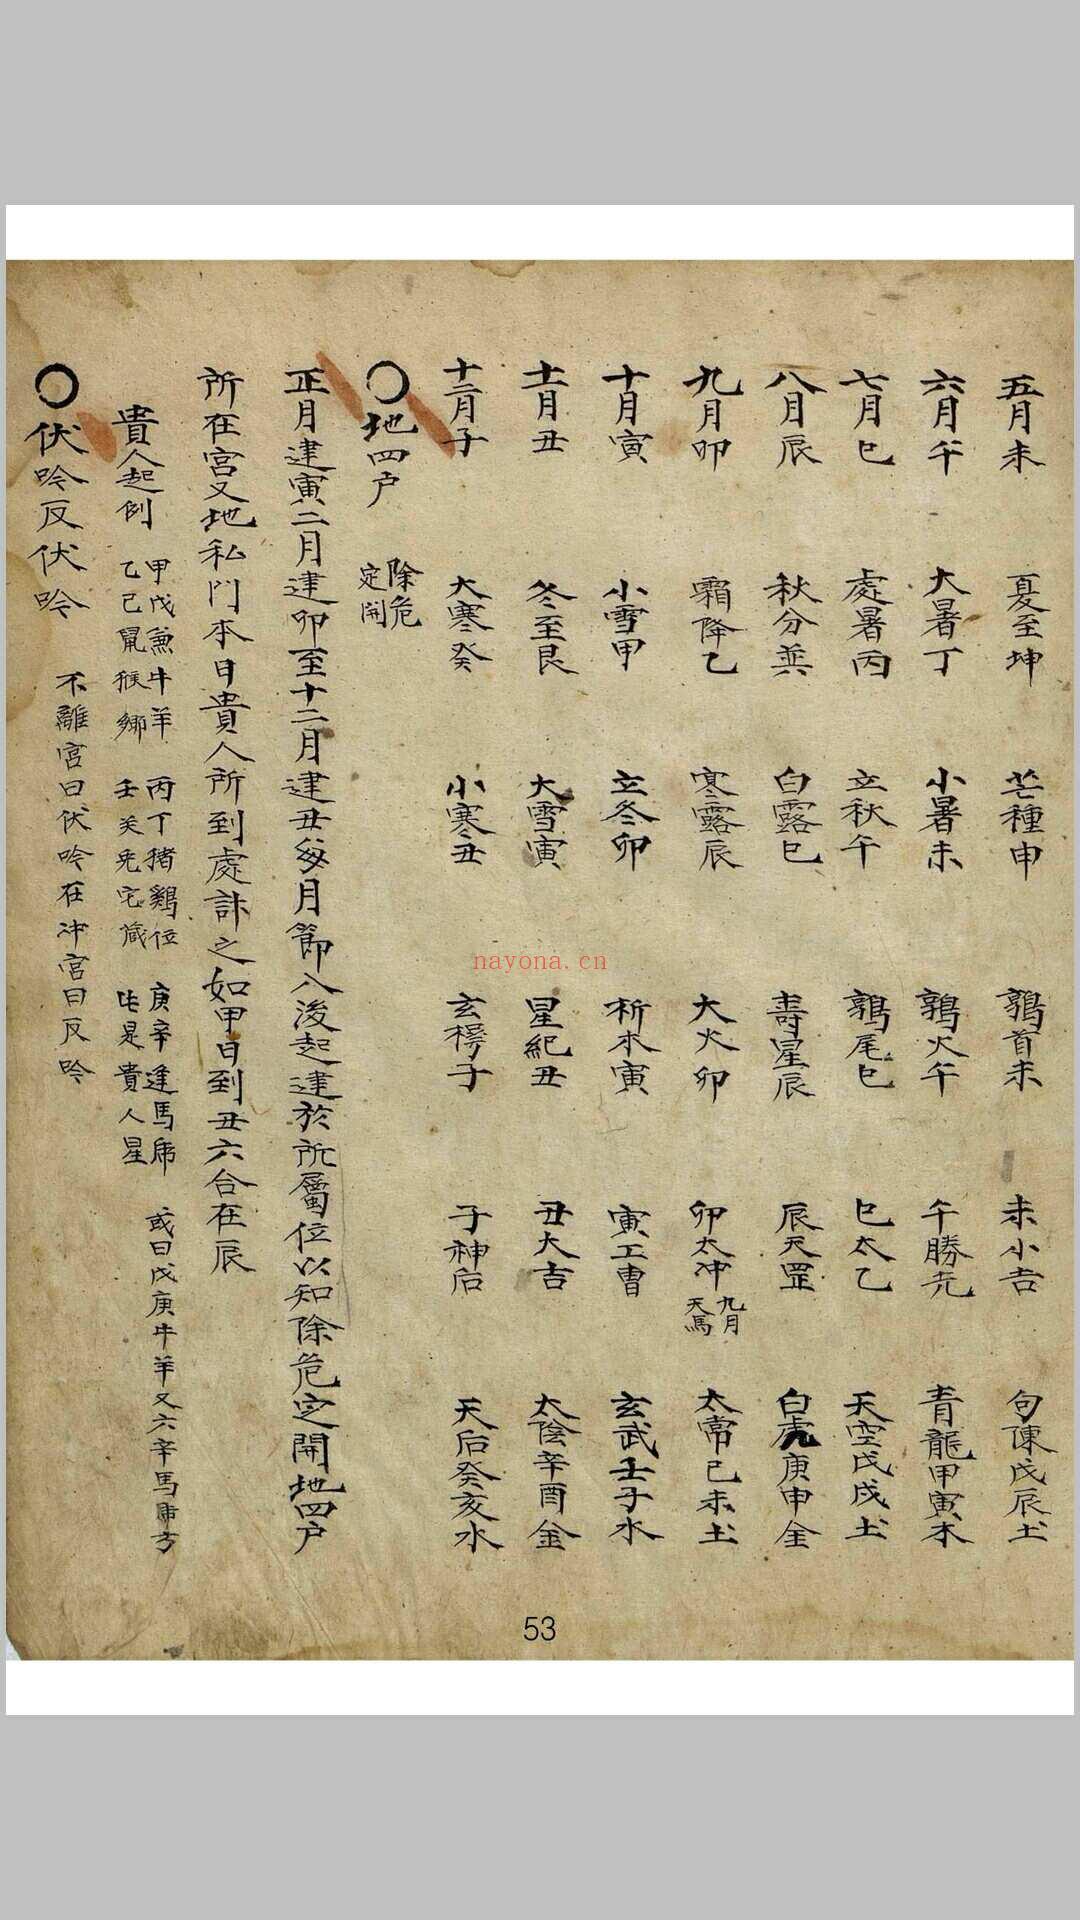 五月未 夏至坤 芒種申 鶉首未 未小吉 句陳戊辰土
六月午 大暑丁 小暑未 鶉火午 午勝光 青龍甲寅木
七月巳 處暑丙 立秋午 鶉尾巳 巳太乙 天空戊戌土
八月辰 秋分巽 白露巳 壽星辰 辰天罡 白虎庚申金
九月卯 霜降乙 寒露辰 大火卯 卯太冲 九月天馬 太常己未土
十月寅 小雪甲 立冬卯 析木寅 寅工曹 玄武壬子水
十一月丑 冬至艮 大雪寅 星紀丑 丑大吉 太陰辛酉金
十二月子 大寒癸 小寒丑 玄枵子 子神后 天后癸亥水
〇地四户 除危定開
正月建寅二月建卯至十二月建丑每月節入後起建於所屬位以知除危定開地四户
所在宮又地私門本日貴人所到處詳之如甲日到丑六合在辰
貴人起例 甲戊兼牛羊 乙己鼠猴鄉 丙丁猪鷄位 壬癸兔宅藏 庚辛逢馬虎 此是貴人星 或曰戊庚牛羊又六辛馬虎方
〇伏吟反伏吟 不離宮曰伏吟在冲宮曰反吟
53
nayona.cn